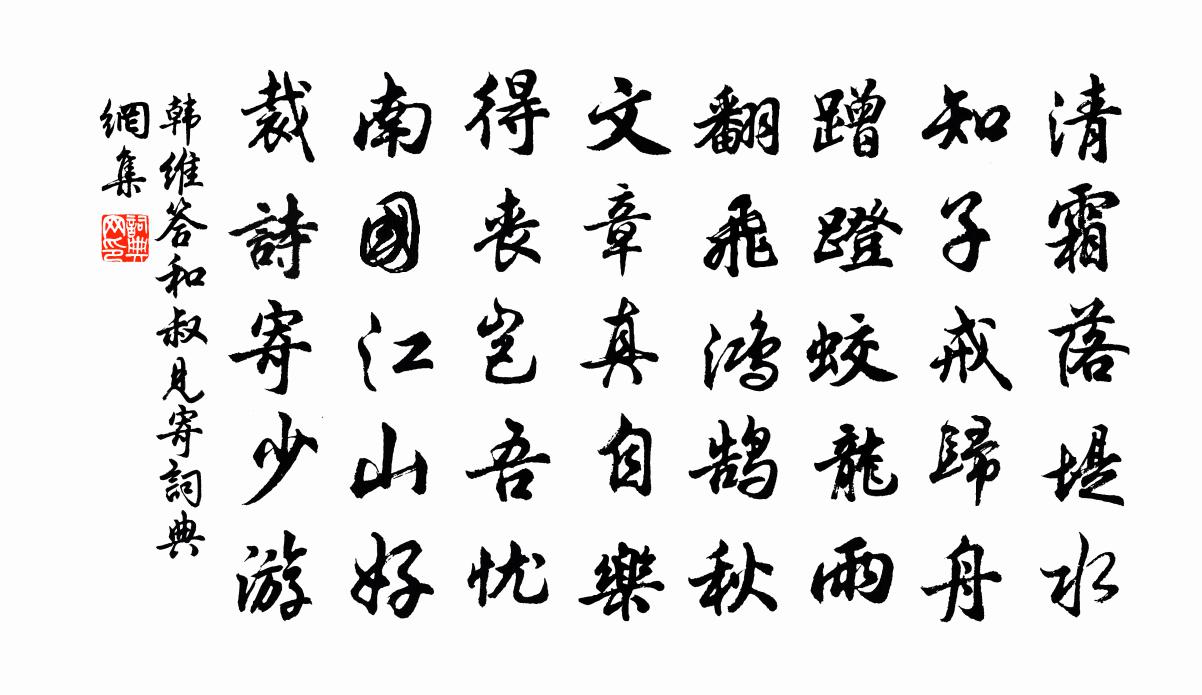 清霜落堤水
知子戒歸舟
蹭蹬蛟龍雨
翻飛鴻鵠秋
文章真自樂
得丧岂吾忧
南國江山好
裁詩寄少游
韩维答和叔見寄詞典
網集
詞典
网印